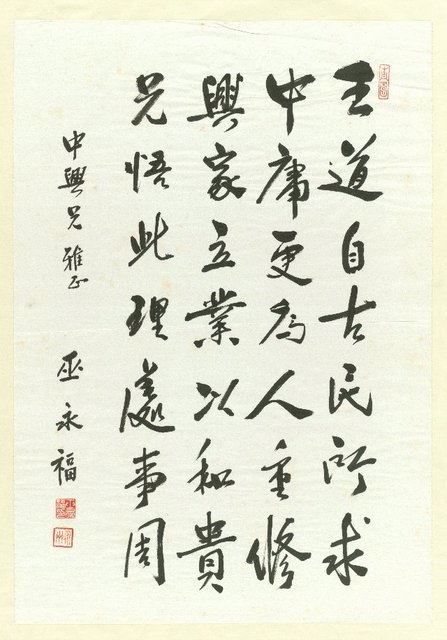 王道自古民所求
中庸更為人重修
興家立業以和貴
兄悟此理處事周
中興兄雅正
巫永福